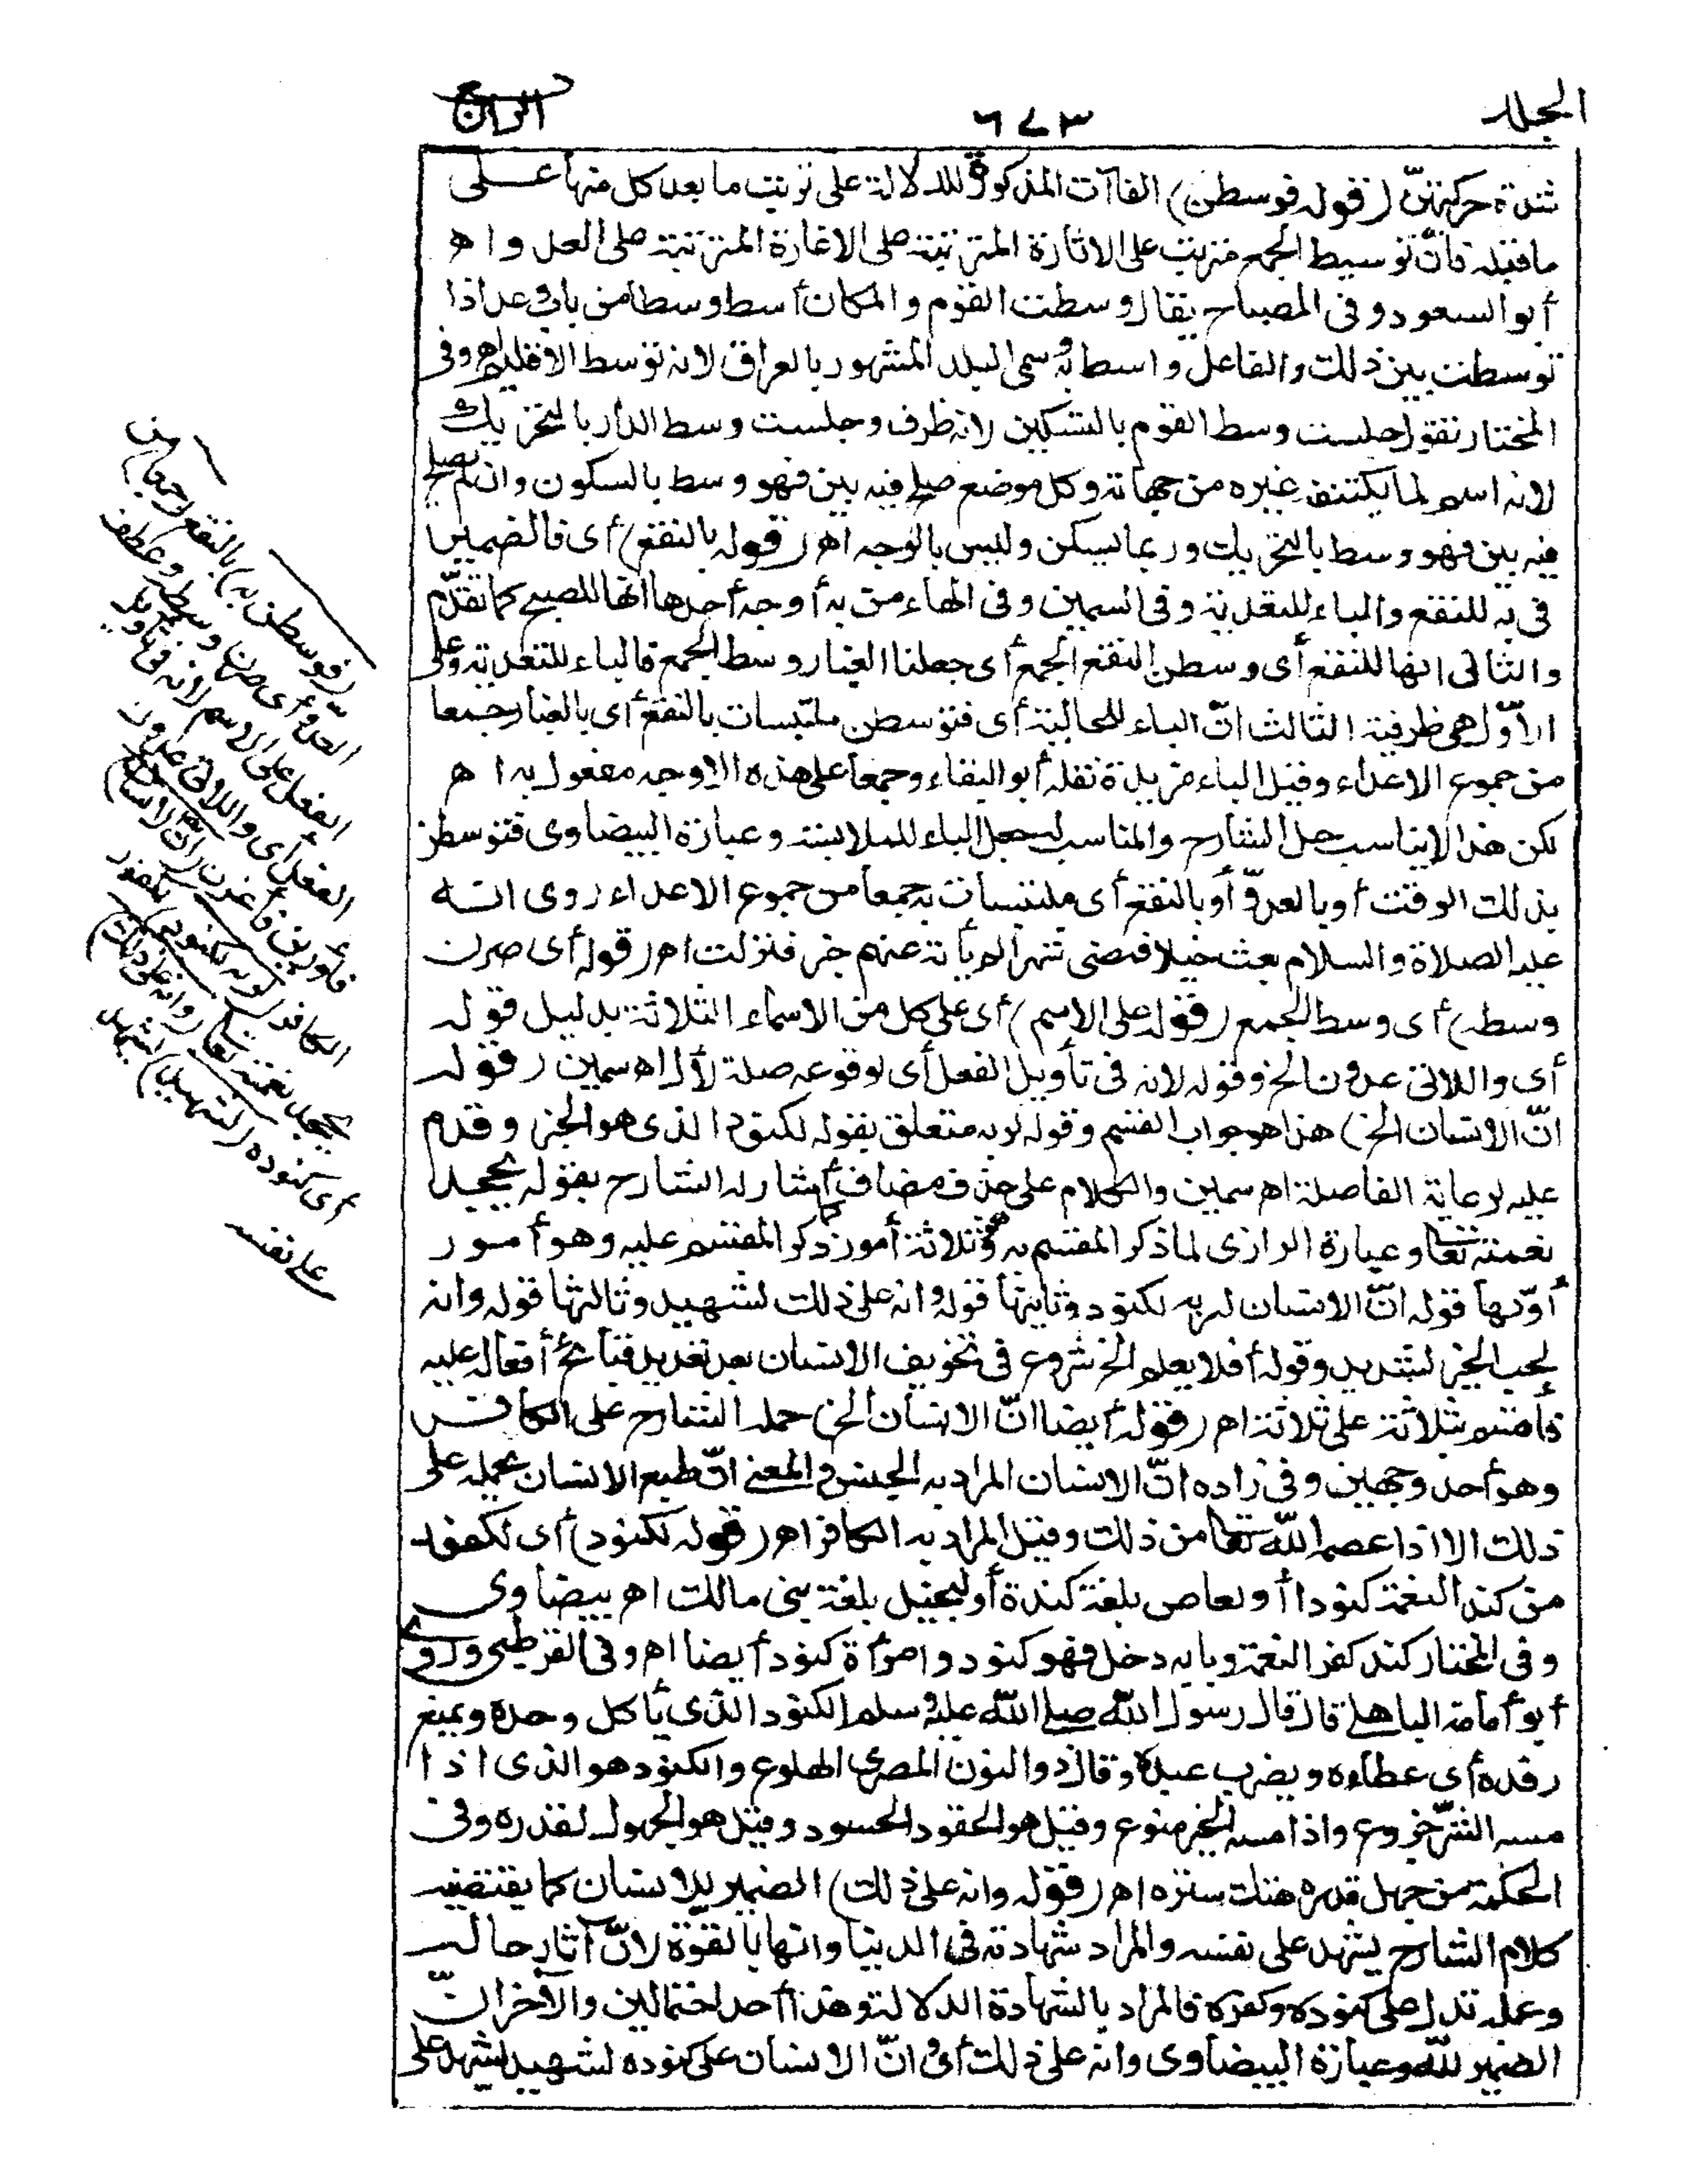 المجلد
٦٧٣
الرابع
شدة حركتهنّ (قوله فوسطن) الفاآت المذكورة للدلالة على ترتيب ما بعد كل منها على
ما قبله فانّ توسيط الجمع مترتب على الاثارة المترتبة على الاغارة المترتبة على العدو اه
أبو السعود وفى المصباح يقال وسطت القوم والمكان أسط وسطا من باب وعد اذا
توسطت بين ذلك والفاعل واسط وبه سمى البلد المشهور بالعراق لانه توسط الاقليم اه وفى
المختار تقول جلست وسط القوم بالتسكين لانه ظرف وجلست وسط الدار بالتحريك
لانه اسم لما يكتنف غيره من جهاته وكل موضع صلح فيه بين فهو وسط بالسكون وان لم يصلح
فيه بين فهو وسط بالتحريك وربما يسكن وليس بالوجه اه (قوله بالنقع) أى فالضمير
فى به للنقع والباء للتعدية وفى السمين وفى الهاء من به أوجه أحدها انها للصبح كما تقدّم
والثانى انها للنقع أى وسطن النقع الجمع أى جعلنا الغبار وسط الجمع فالباء للتعدية وعلى
الأوّل هى ظرفية الثالث انّ الباء للحالية أى فتوسطن ملتبسات بالنقع أى بالغبار جمعا
من جموع الاعداء وقيل الباء مزيدة نقله أبو البقاء وجمعا على هذه الاوجه مفعول به اه
لكن هذا لايناسب حل الشارح والمناسب له جعل الباء للملابسة وعبارة البيضاوى فتوسطن
بذلك الوقت أو بالعدوّ أو بالنقع أى ملتبسات به جمعا من جموع الاعداء روى انه
عليه الصلاة والسلام بعث خيلا فمضى شهر لم يأته عنهم خبر فنزلت اه (قوله أى صرن
وسطه) أى وسط الجمع (قوله على الاسم) أى على كل من الاسماء الثلاثة بدليل قوله
أى واللاتى عدون الخ وقوله لانه فى تأويل الفعل أى لوقوعه صلة لأل اه سمين (قوله
انّ الانسان الخ) هذا هو جواب القسم وقوله لربه متعلق بقوله لكنود الذى هو الخبر وقدم
عليه لرعاية الفاصلة اه سمين والكلام على حذف مضاف كما أشار له الشارح بقوله بجحد
نعمته تعالى وعبارة الرازى لما ذكر المقسم به وهو ثلاثة أمور ذكر المقسم عليه وهو أمور
أوّلها قوله انّ الانسان لربه لكنود وثانيها قوله وانه على ذلك لشهيد وثالثها قوله وانه
لحب الخير لشديد وقوله أفلا يعلم الخ شروع فى تخويف الانسان بعد تعديد قبائح أفعاله عليه
فأقسم بثلاثة على ثلاثة اه (قوله أيضا انّ الانسان الخ) حمله الشارح على الكافر
وهو أحد وجهين وفى زاده انّ الانسان المراد به الجنس والمعنى انّ طبع الانسان يحمله على
ذلك الا اذا عصمه الله تعالى من ذلك وقيل المراد به الكافر اه (قوله لكنود) أى لكفور
من كند النعمة كنودا أو لعاص بلغة كندة أو لبخيل بلغة بنى مالك اه بيضاوى
وفى المختار كند كفر النعمة وبابه دخل فهو كنود وامرأة كنود أيضا اه وفى القرطبى وروى
أبو أمامة الباهلى قال قال رسول الله صلى الله عليه وسلم الكنود الذى يأكل وحده ويمنع
رفده أى عطاءه ويضرب عبده وقال ذو النون المصرى الهلوع والكنود هو الذى اذا
مسه الشرّ جزوع واذا مسه الخير منوع وقيل هو الحقود الحسود وقيل هو الجهول لقدره وفى
الحكمة من جهل قدره هتك ستره اه (قوله وانه على ذلك) الضمير للانسان كما يقتضيه
كلام الشارح يشهد على نفسه والمراد شهادته فى الدنيا وانها بالقوّة لانّ آثار حاله
وعمله تدل على كنوده وكفره فالمراد بالشهادة الدلالة وهذا أحد احتمالين والآخر انّ
الضمير لله وعبارة البيضاوى وانه على ذلك أى وانّ الانسان على كنوده لشهيد يشهد على
(فوسطن به) بالنقع (جمعا) من
العدوّ أى صرن وسطه وعطف
الفعل على الاسم لانه فى تأويل
الفعل أى واللاتى عدون
فأورين فأغرن (انّ الانسان)
الكافر (لربه لكنود) لكفور
بجحد نعمته تعالى (وانه على ذلك)
أى كنوده (لشهيد) يشهد
على نفسه